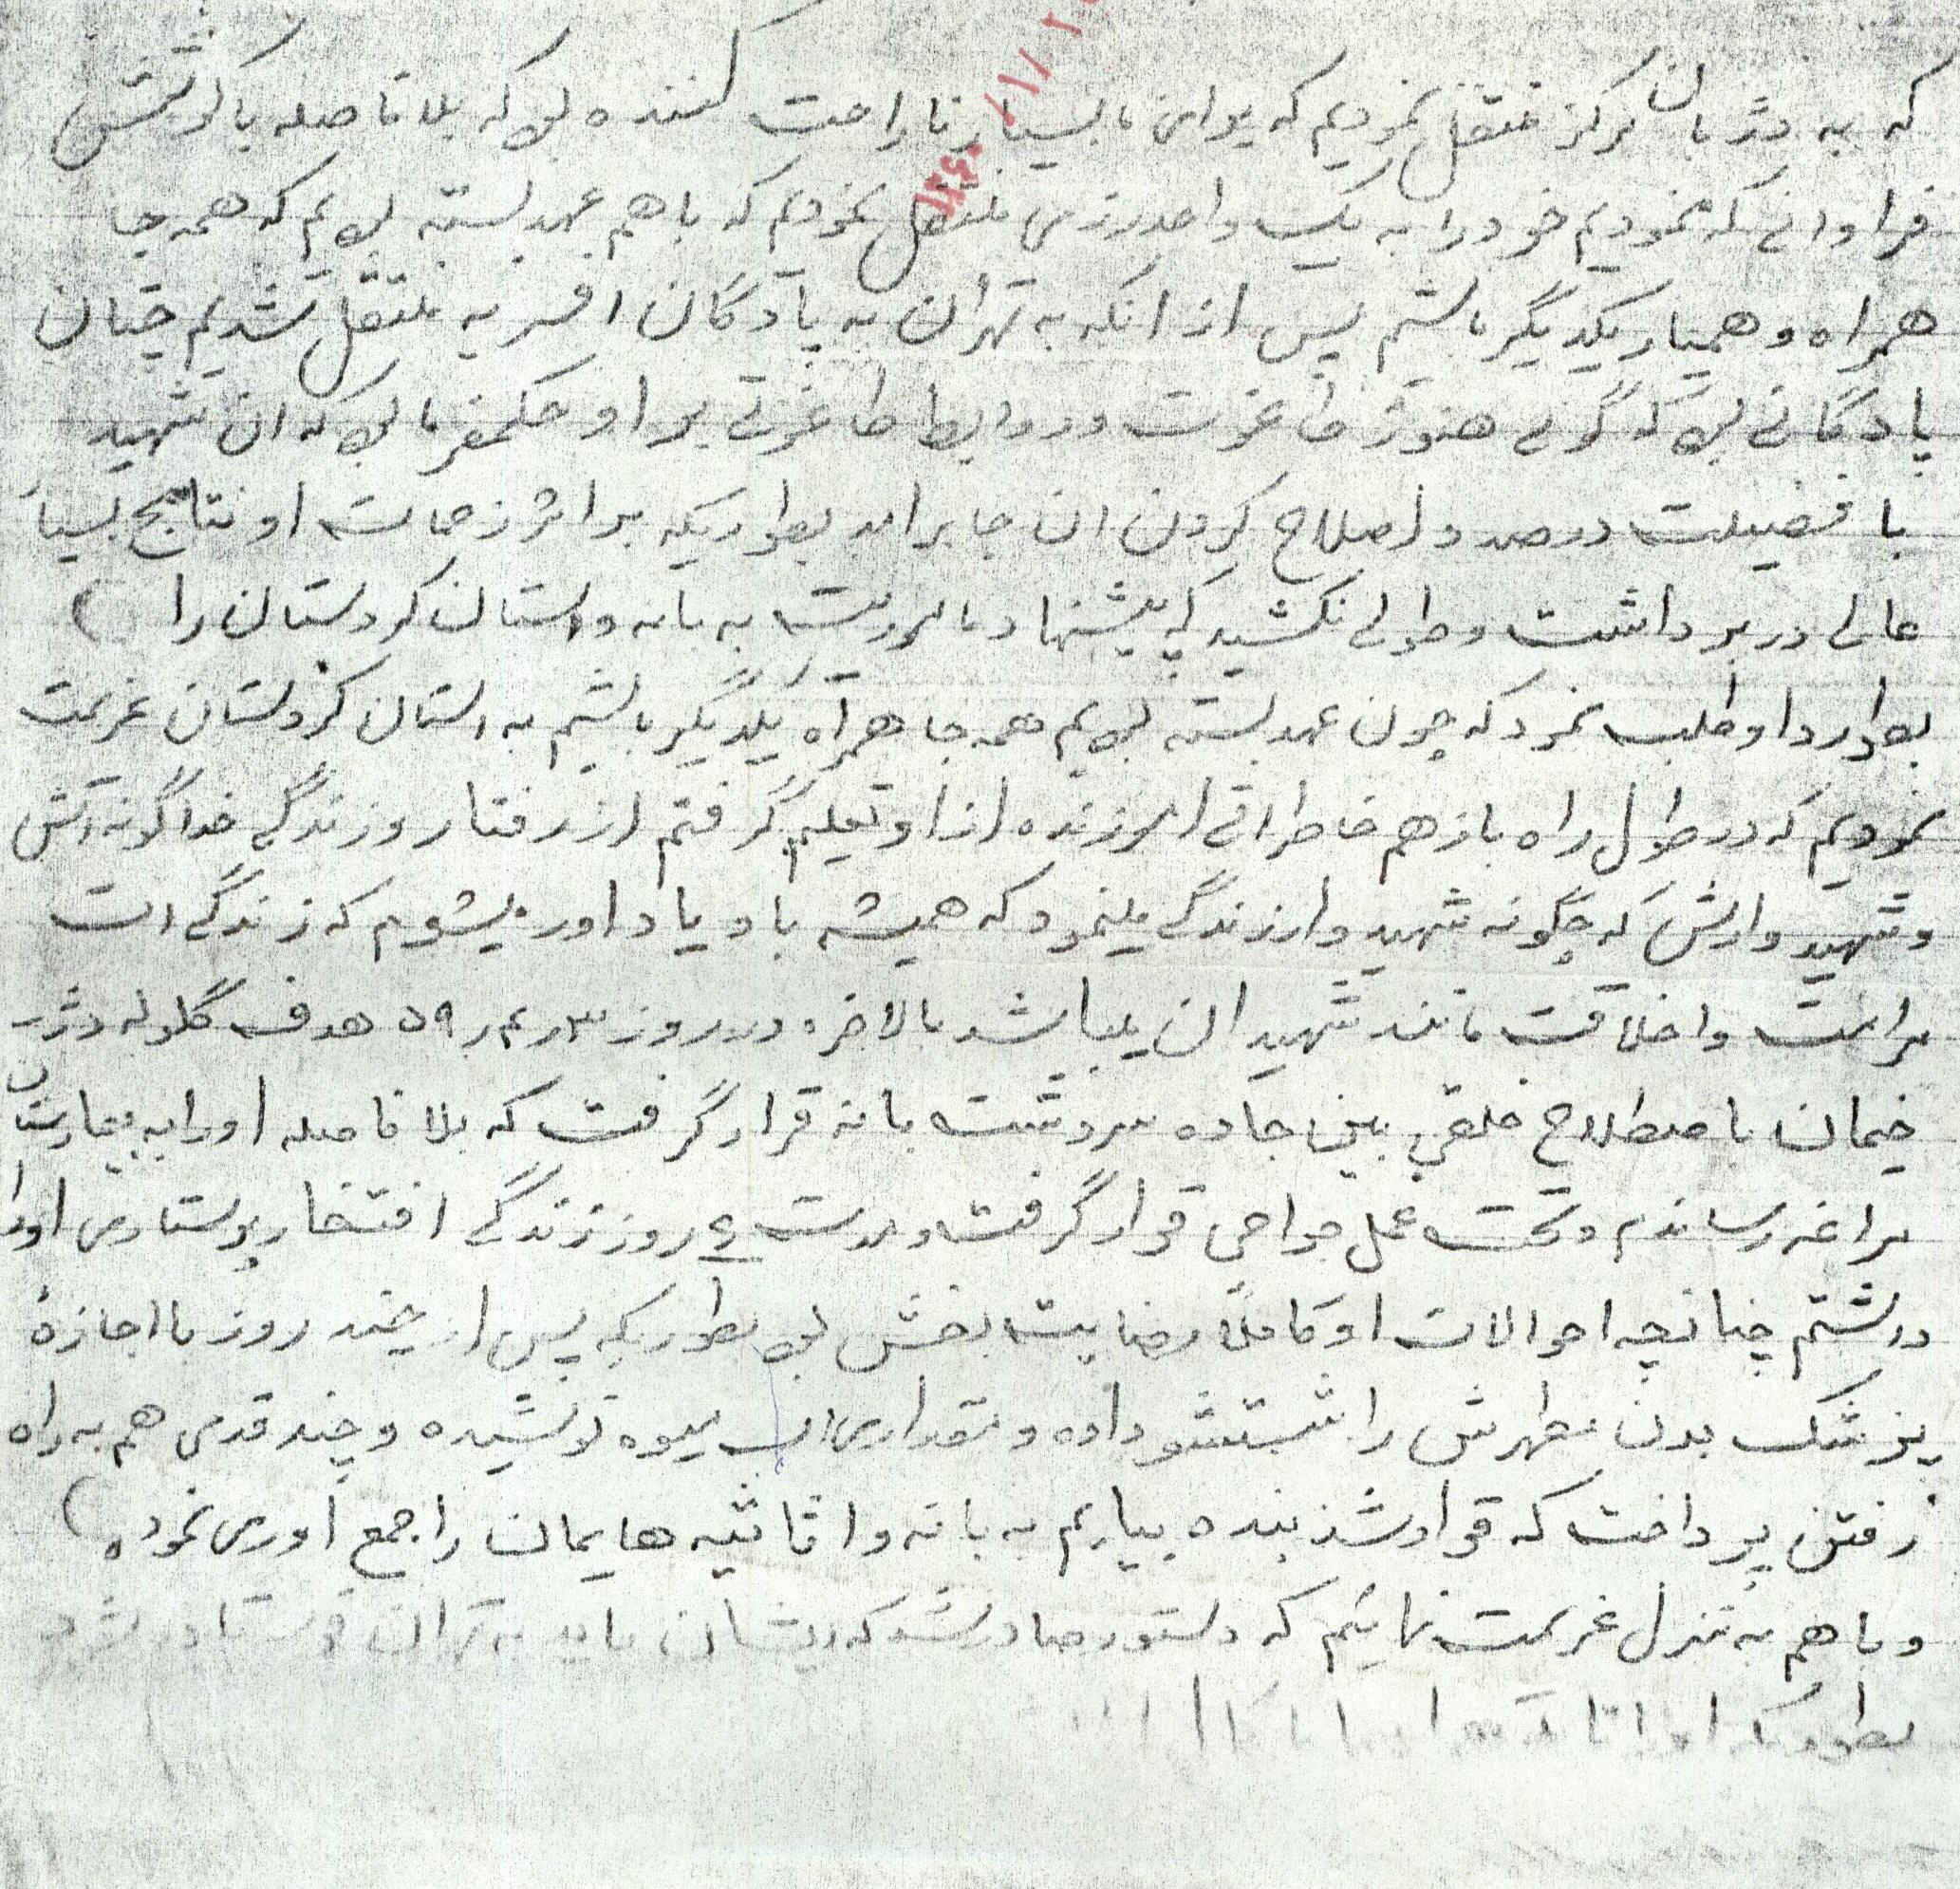 که به دژبان مرکز منتقل نمودیم که برای ما بسیار ناراحت کننده بود که بلافاصله با کوشش
فراوانی که نمودیم خود را به یک واحد رزمی منتقل نمودیم که با هم عهد بسته بودیم که همه جا
همراه و همیار یکدیگر باشیم پس از انکه به تهران به پادگان افسریه منتقل شدیم چنان
پادگانی بود که گوئی هنوز طاغوت و روابط طاغوتی بر او حکمفرما بود که ان شهید
با فضیلت درصدد اصلاح کردن ان جا برامد بطوریکه بر اثر زحمات او نتایج بسیار
عالی در بر داشت و طولی نکشید که پیشنهاد ماموریت به بانه و استان کردستان را
بطور داوطلب نمود که چون عهد بسته بودیم همه جا همراه یکدیگر باشیم به استان کردستان عزیمت
نمودیم که در طول راه باز هم خاطراتی ارزنده از او تعلیم گرفتم از رفتار و زندگی خداگونه اش
و شهید وارش که چگونه شهید وار زندگی مینمود که همیشه با او یاداور میشوم که زندگی ات
مرامت و اخلاقت مانند شهیدان میباشد بالاخره در روز ۵۹ هدف گلوله دژ
خیمان باصطلاح خلقی بین جاده سردشت بانه قرار گرفت که بلافاصله او را به بیمارستان
مراغه رساندم و تحت عمل جراحی قرار گرفت و مدت ۴ روز زندگی افتخار پرستاری او را
داشتم چنانچه احوالات او کاملاً رضایت بخش بود بطوریکه پس از چند روز با اجازهٔ
پزشک بدن مطهرش را شستشو داده و مقداری اب میوه نوشیده و چند قدمی هم به راه
رفتن پرداخت که قرار شد بنده بیایم به بانه و اثاثیه هایمان را جمع اوری نموده
و با هم به منزل عزیمت نمائیم که دستور صادر شد که ایشان باید به تهران فرستاده شود
بطوریکه او را